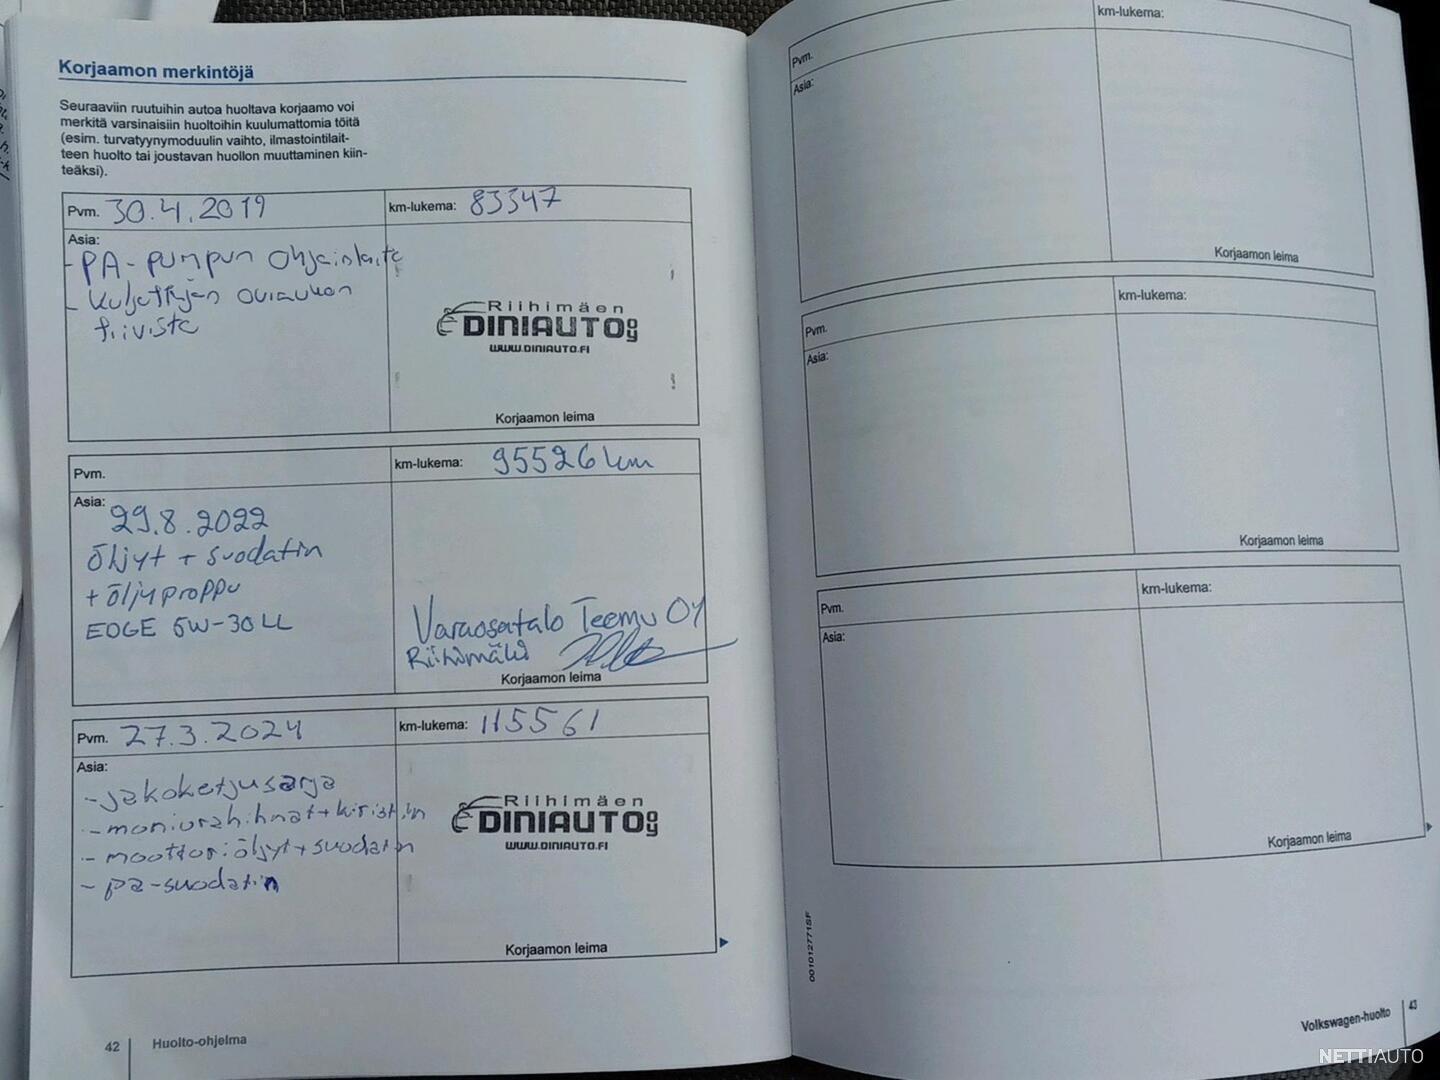 Korjaamon merkintöjä
Seuraaviin ruutuihin autoa huoltava korjaamo voi
merkitä varsinaisiin huoltoihin kuulumattomia töitä
(esim. turvatyynymoduulin vaihto, ilmastointilait-
teen huolto tai joustavan huollon muuttaminen kiin-
teäksi).
Pvm. 30.4.2019
km-lukema: 83347
Asia:
- PA-pumpun ohjainlaite
- kuljettajan oviaukon
tiiviste
Riihimäen
DINIAUTO OY
WWW.DINIAUTO.FI
Korjaamon leima
Pvm.
km-lukema: 95526 km
Asia:
29.8.2022
öljyt + suodatin
+ öljyproppu
EDGE 5W-30 LL
Varaosatalo Teemu OY
Riihimäki
Korjaamon leima
Pvm. 27.3.2024
km-lukema: 115561
Asia:
- jakoketjusarja
- moniurahihnat+kiristin
- moottoriöljyt+suodatin
- pa-suodatin
Riihimäen
DINIAUTO OY
WWW.DINIAUTO.FI
Korjaamon leima
42 Huolto-ohjelma
Pvm.
km-lukema:
Asia:
Korjaamon leima
Pvm.
km-lukema:
Asia:
Korjaamon leima
Pvm.
km-lukema:
Asia:
Korjaamon leima
001012771SF
Volkswagen-huolto 43
NETTIAUTO